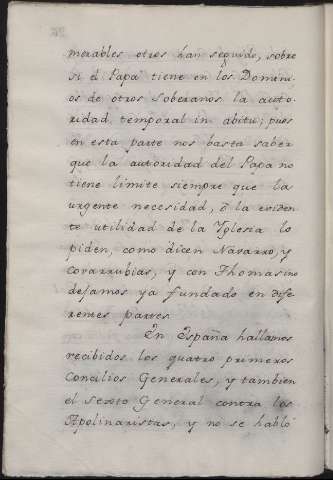 merables otros han seguido, sobre
si el Papa tiene en los Domini-
os de otros Soberanos la auto-
ridad temporal in abitu; pues
en esta parte nos basta saber
que la autoridad del Papa no
tiene limite siempre que la
urgente necesidad, ó la eviden
te utilidad de la Yglesia lo
piden, como dicen Navarro, y
Covarrubias, y con Thomasino
dejamos ya fundado en dife
rentes partes.
En España hallamos
recibidos los quatro primeros
Concilios Generales, y tambien
el sexto General contra los
Apolinaristas, y no se habló